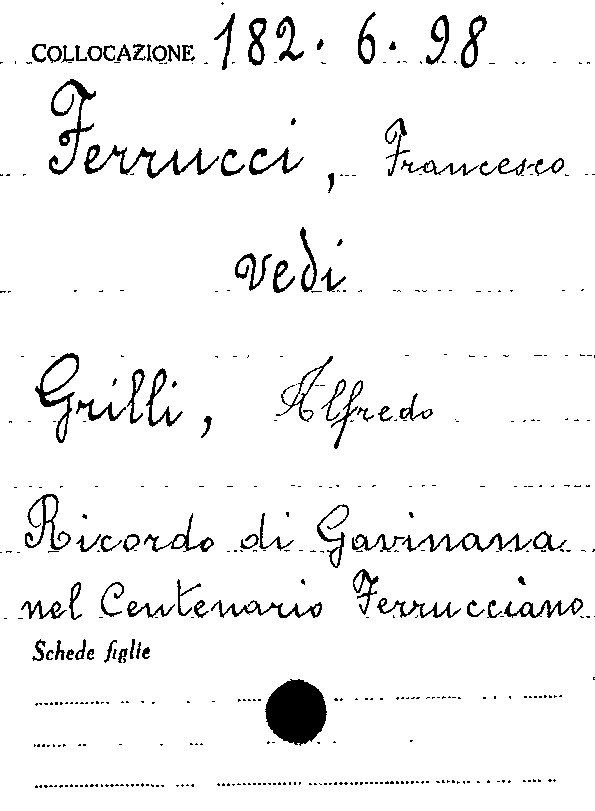 COLLOCAZIONE 182. 6. 98
Ferrucci, Francesco
vedi
Grilli, Alfredo
Ricordo di Gavinana
nel Centenario Ferrucciano
Schede figlie